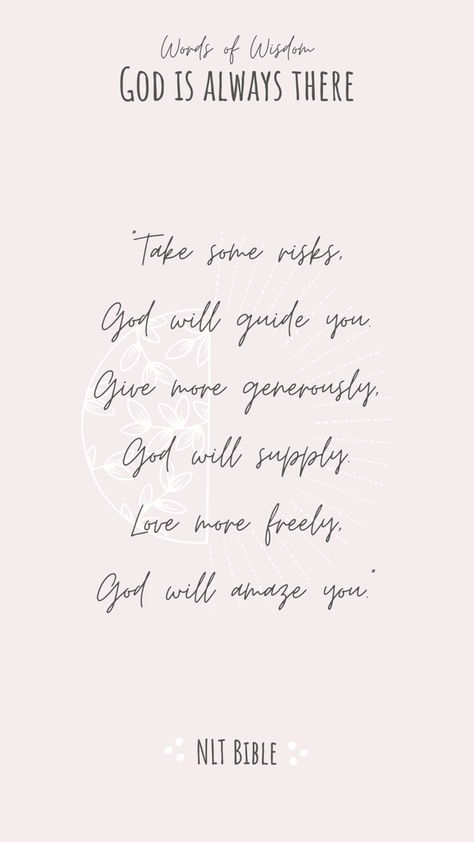 Words of Wisdom
GOD IS ALWAYS THERE
"Take some risks,
God will guide you.
Give more generously,
God will supply.
Love more freely,
God will amaze you."
NLT BIBLE